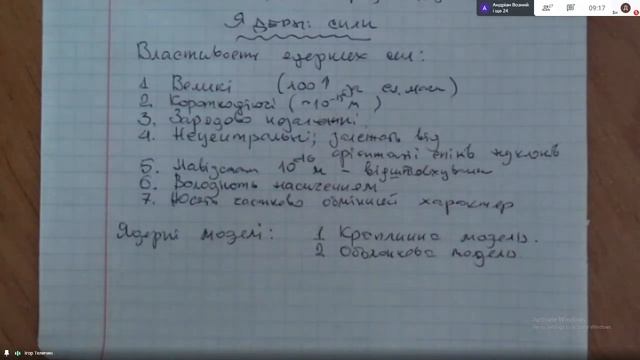 Андріан Возний
і ще 24
09:17
Ядерні сили
Властивості ядерних сил:
1 Великі (100↑ ел. маг)
2. Короткодіючі (~10⁻¹⁵ м)
3. Зарядово незалежні
4. Нецентральні; залежать від
орієнтації спінів нуклонів
5. На відстані 10⁻¹⁶ м - відштовхування
6. Володіють насиченням
7. Носять частково обмінний характер
Ядерні моделі: 1 Краплинна модель.
2 Оболонкова модель
Activate Windows
Ігор Телегин